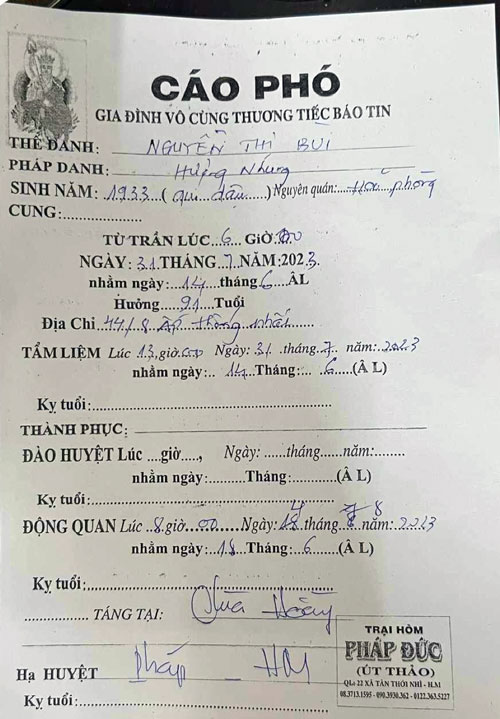 CÁO PHÓ
GIA ĐÌNH VÔ CÙNG THƯƠNG TIẾC BÁO TIN
THẾ DANH: NGUYỄN THỊ BÙI
PHÁP DANH: Hưởng Nhung
SINH NĂM: 1933 ( Quí dậu ) Nguyên quán: Hải phòng
CUNG:....................
TỪ TRẦN LÚC 6 GIỜ 00
NGÀY: 31 THÁNG 7 NĂM: 2023
nhằm ngày: 14 tháng 6 ÂL
Hưởng 91 Tuổi
Địa Chỉ 44/8 Ấp thống nhất
TẨM LIỆM Lúc 13 giờ 00 Ngày: 31 tháng 7 năm: 2023
nhằm ngày: 14 Tháng: 6 (Â L)
Kỵ tuổi:....................
THÀNH PHỤC:
ĐÀO HUYỆT Lúc ....giờ....., Ngày: ......tháng......năm:........
nhằm ngày:............Tháng:............(Â L)
Kỵ tuổi:....................
ĐỘNG QUAN Lúc 8 giờ 00 Ngày: 4 tháng 8 năm: 2023
nhằm ngày: 18 Tháng 6 (Â L)
Kỵ tuổi:....................
.......... TÁNG TẠI: Chùa Hoằng
Hạ HUYỆT Pháp - HM
Kỵ tuổi:....................
TRẠI HÒM
PHÁP ĐỨC
(ÚT THẢO)
QLộ 22 XÃ TÂN THỚI NHÌ - H.M
08.3713.1595 - 090.3930.362 - 0122.363.5227